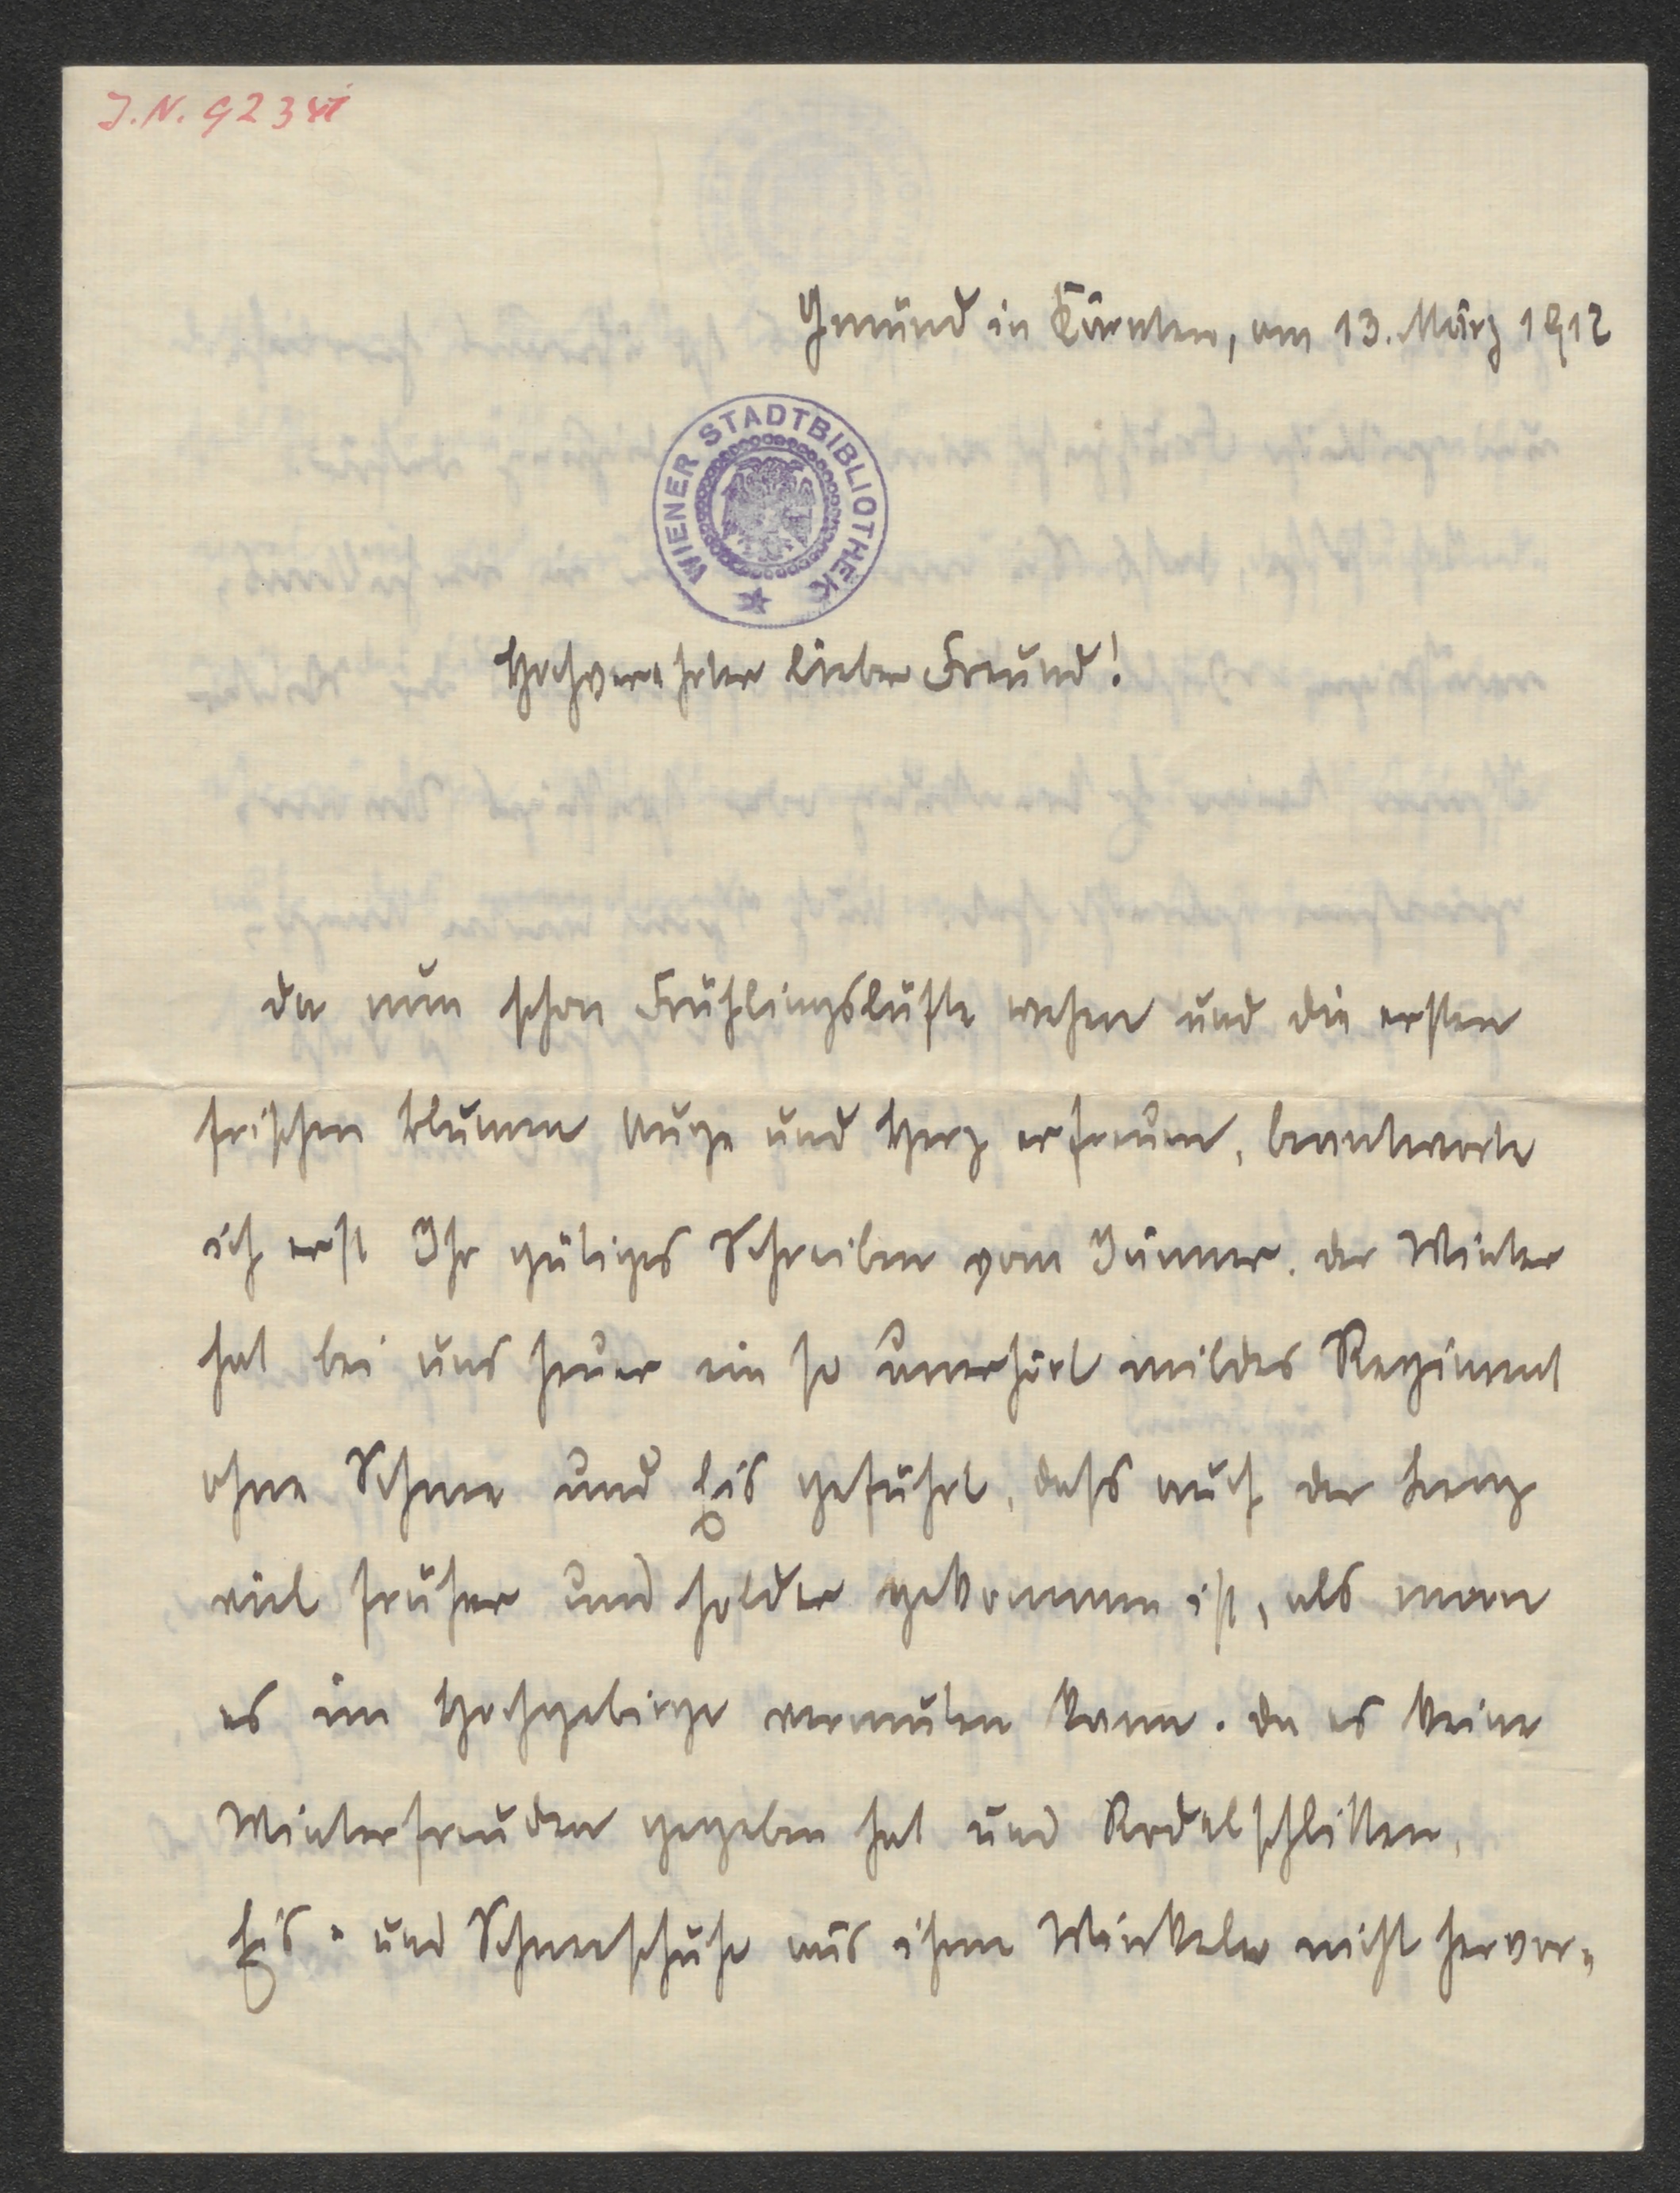 J.N. 9234
Gmünd in Kärnten, am 13. März 1912
WIENER STADTBIBLIOTHEK
Hochverehrter lieber Freund!
da nun schon Frühlingslüfte wehen und die ersten
frischen Blumen Auge und Herz erfreuen, beantworte
ich erst Ihr gütiges Schreiben vom Jänner. der Winter
hat bei uns heuer ein so unerhört mildes Regiment
ohne Schnee und Eis geführt, dass auch der Lenz
viel früher und holder gekommen ist, als man
es im Hochgebirge vermuten kann. da es keine
Winterfreuden gegeben hat und Rodelschlitten,
Eis- und Schneeschuhe aus ihren Winkeln nicht hervor-